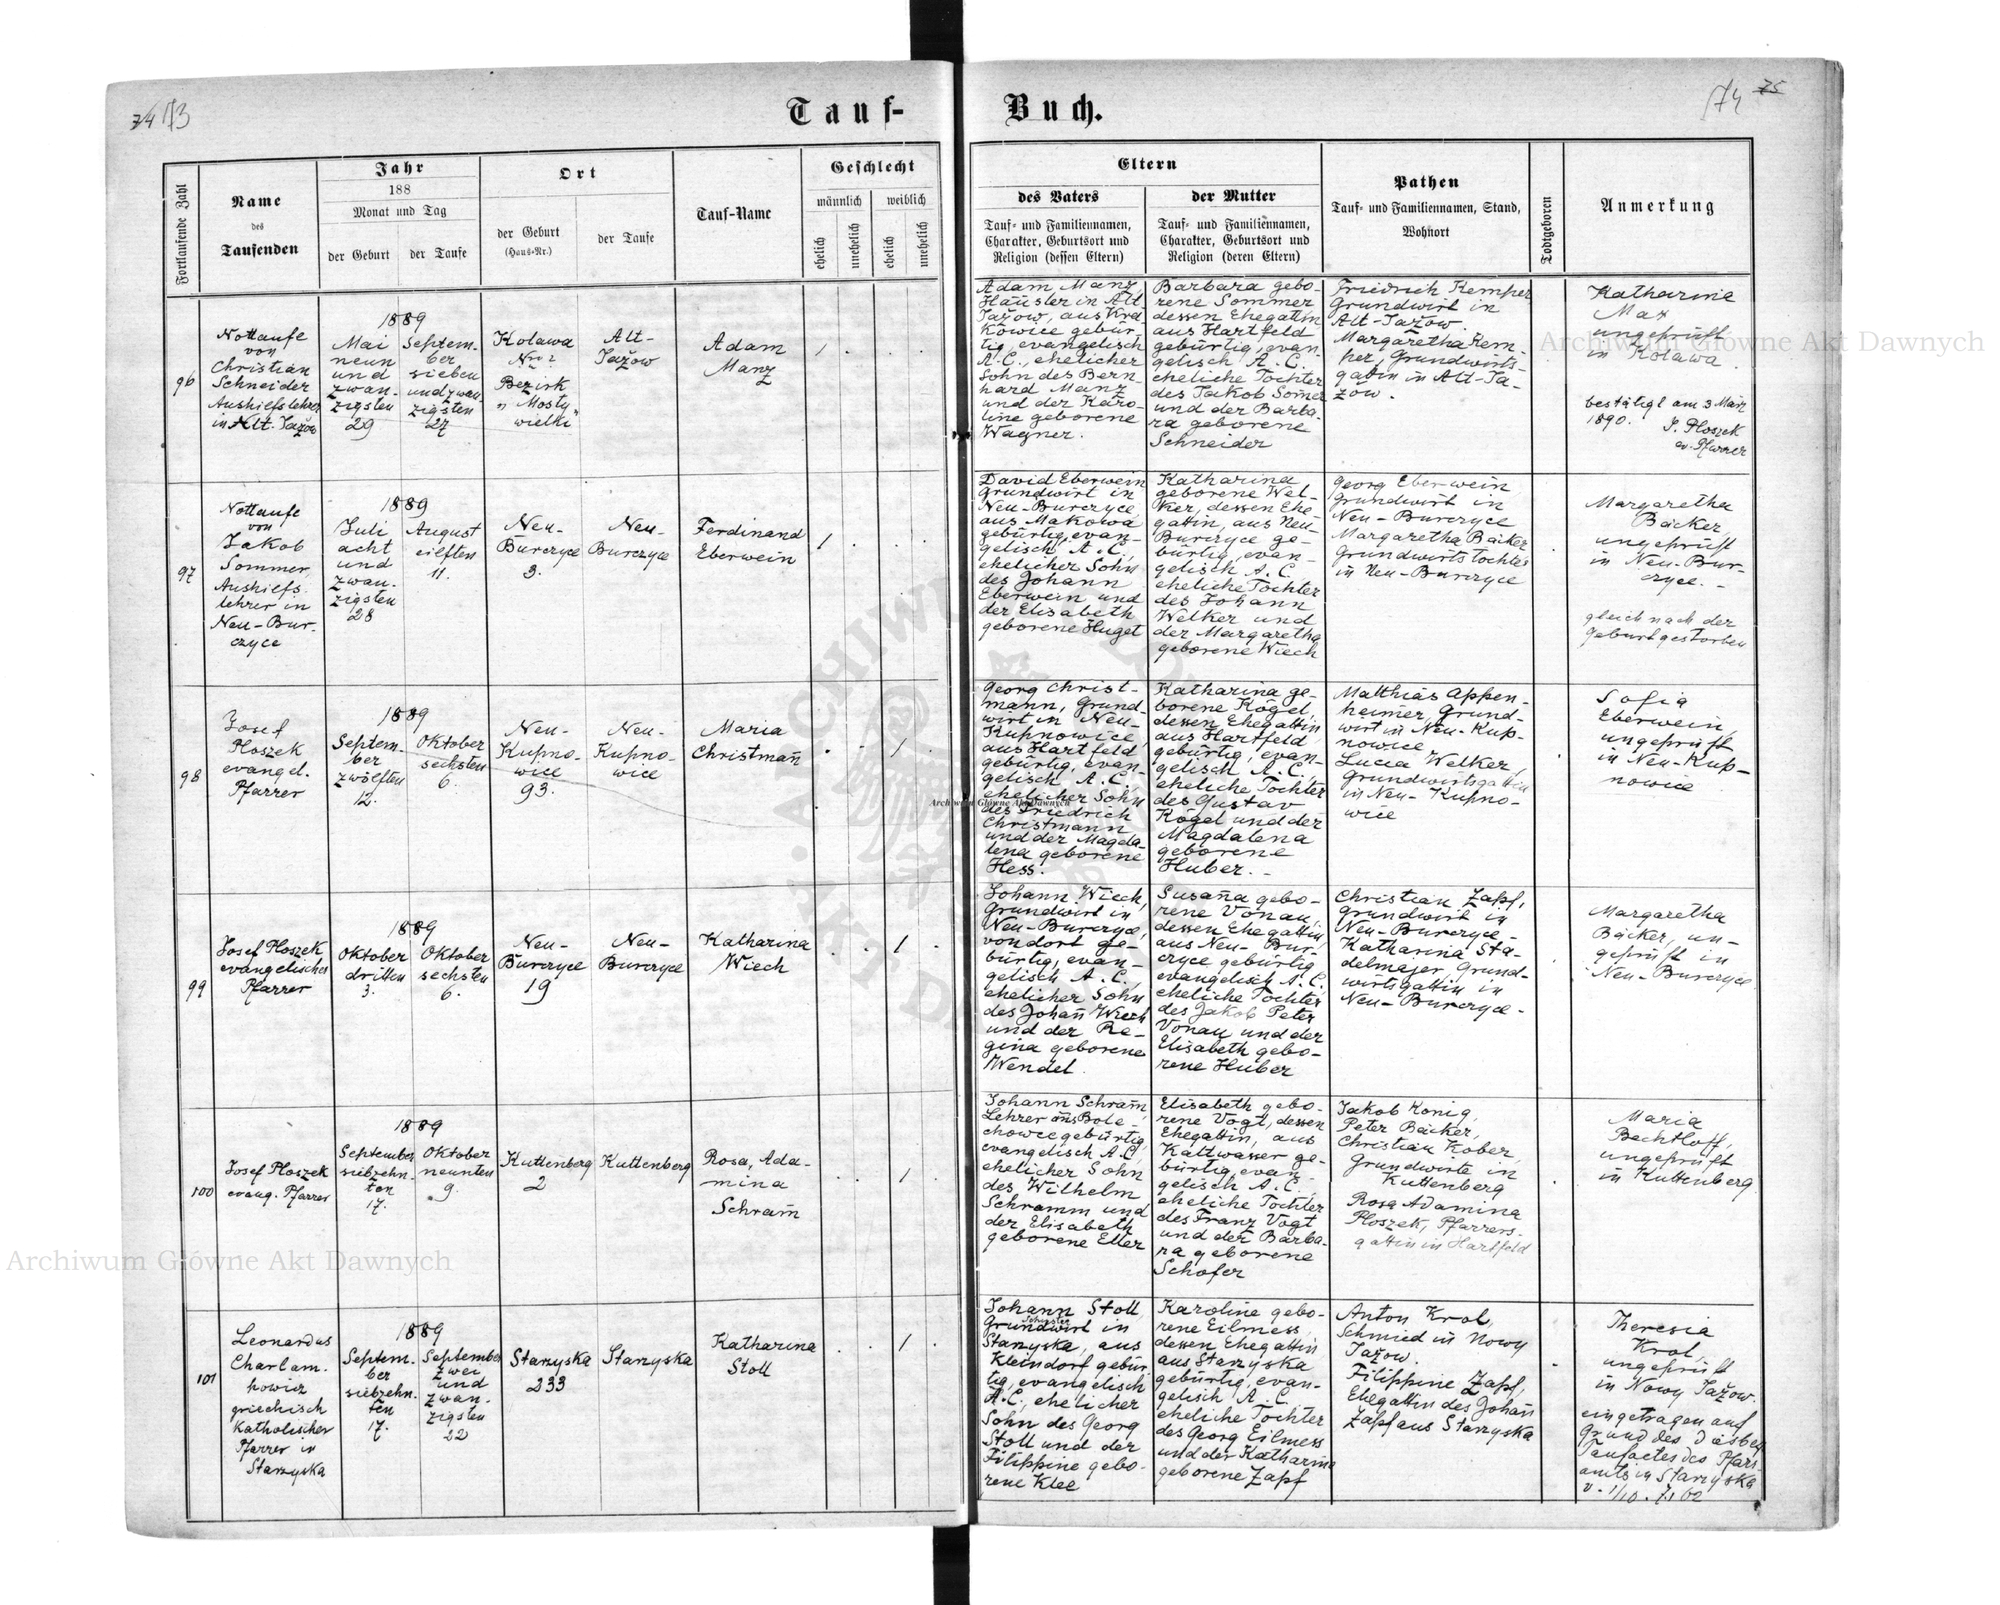 74 73
Tauf-
Buch.
74 75
Fortlaufende Zahl
Name
des
Taufenden
Jahr
188
Monat und Tag
der Geburt
der Taufe
Ort
der Geburt
(Haus-Nr.)
der Taufe
Tauf-Name
Geschlecht
männlich
weiblich
ehelich
unehelich
ehelich
unehelich
Eltern
des Vaters
Tauf- und Familiennamen,
Charakter, Geburtsort und
Religion (dessen Eltern)
der Mutter
Tauf- und Familiennamen,
Charakter, Geburtsort und
Religion (deren Eltern)
Pathen
Tauf- und Familiennamen, Stand,
Wohnort
Todtgeboren
Anmerkung
96
Nottaufe
von
Christian
Schneider
Aushilfslehrer
in Alt-Jažow
1889
Mai
neun
und
zwan-
zigsten
29
Septem-
ber
sieben
und zwan
zigsten
27
Kolawa
Nro 2
Bezirk
" Mosty "
wielki
Alt-
Jažow
Adam
Manz
1
Adam Manz,
Häusler in Alt
Jažow, aus Kra
kowice gebür-
tig, evangelisch
A.C., ehelicher
Sohn des Bern-
hard Manz
und der Karo-
line geborene
Wagner.
Barbara gebo-
rene Sommer
dessen Ehegattin
aus Hartfeld
gebürtig, evan-
gelisch A.C.
eheliche Tochter
des Jakob Somer
und der Barba-
ra geborene
Schneider
Friedrich Kemper
Grundwirt in
Alt-Jažow.
Margaretha Kem-
per, Grundwirts-
gattin in Alt-Ja-
žow.
Katharina
Max
ungeprüft
in Kolawa
bestätigt am 3 März
1890. J. Ploszek
ev. Pfarrer
97
Nottaufe
von
Jakob
Sommer,
Aushilfs-
lehrer in
Neu-Bur-
czyce
1889
Juli
acht
und
zwan-
zigsten
28
August
eilften
11.
Neu-
Burczyce
3.
Neu-
Burczyce
Ferdinand
Eberwein
1
David Eberwein
Grundwirt in
Neu-Burczyce,
aus Makowa
gebürtig, evan-
gelisch A.C.,
ehelicher Sohn
des Johann
Eberwein und
der Elisabeth
geborene Huget
Katharina
geborene Wel-
ker, dessen Ehe-
gattin, aus Neu
Burczyce ge-
bürtig, evan-
gelisch A.C.
eheliche Tochter
des Johann
Welker und
der Margaretha
geborene Wiech
Georg Eberwein
Grundwirt in
Neu-Burczyce
Margaretha Bäcker
Grundwirtstochter
in Neu-Burczyce
Margaretha
Bäcker,
ungeprüft
in Neu-Bur-
czyce.-
gleich nach der
Geburt gestorben
98
Josef
Ploszek
evangel.
Pfarrer
1889
Septem-
ber
zwölften
12.
Oktober
sechsten
6.
Neu-
Kupno-
wice
93.
Neu-
Kupno-
wice
Maria
Christmañ
1
Georg Christ-
mann, Grund-
wirt in Neu-
Kupnowice,
aus Hartfeld
gebürtig, evan-
gelisch A.C.,
ehelicher Sohn
des Friedrich
Christmann
und der Magda-
lena geborene
Hess.
Katharina ge-
borene Kögel,
dessen Ehegattin
aus Hartfeld
gebürtig, evan-
gelisch A.C.,
eheliche Tochter
des Gustav
Kögel und der
Magdalena
geborene
Huber.-
Matthias Appen-
heimer, Grund-
wirt in Neu-Kup-
nowice
Lucia Welker,
Grundwirtsgattin
in Neu-Kupno-
wice
Sofia
Eberwein,
ungeprüft
in Neu-Kup-
nowice
99
Josef Ploszek
evangelischer
Pfarrer
1889
Oktober
dritten
3.
Oktober
sechsten
6.
Neu-
Burczyce
19
Neu-
Burczyce
Katharina
Wiech
1
Johann Wiech,
Grundwirt in
Neu-Burczyce,
von dort ge-
bürtig, evan-
gelisch A.C.,
ehelicher Sohn
des Johañ Wiech
und der Re-
gina geborene
Wendel.
Susaña gebo-
rene Vonau,
dessen Ehegattin,
aus Neu-Bur-
czyce gebürtig
evangelisch A.C.,
eheliche Tochter
des Jakob Peter
Vonau und der
Elisabeth gebo-
rene Huber
Christian Zapf,
Grundwirt in
Neu-Burczyce-
Katharina Sta-
delmajer, Grund-
wirtsgattin in
Neu-Burczyce-
Margaretha
Bäcker, un-
geprüft in
Neu-Burczyce
100
Josef Ploszek
evang. Pfarrer
1889
September
siebzehn-
ten
17.
Oktober
neunten
9.
Kuttenberg
2
Kuttenberg
Rosa, Ada-
mina
Schram̃
1
Johann Schram̃,
Lehrer aus Bole-
chowce gebürtig,
evangelisch A.C.
ehelicher Sohn
des Wilhelm
Schramm und
der Elisabeth
geborene Etter
Elisabeth gebo-
rene Vogt, dessen
Ehegattin, aus
Kaltwasser ge-
bürtig, evan-
gelisch A.C.
eheliche Tochter
des Franz Vogt
und der Barba-
ra geborene
Schofer
Jakob König,
Peter Bäcker,
Christian Kober,
Grundwirte in
Kuttenberg
Rosa Adamina
Ploszek, Pfarrers-
gattin in Hartfeld
Maria
Bechtloff,
ungeprüft
in Kuttenberg
101
Leonardus
Charlam-
powicz
griechisch
Katholischer
Pfarrer in
Starzyska
1889
Septem-
ber
siebzehn-
ten
17.
September
zwei
und
zwan-
zigsten
22
Starzyska
233
Starzyska
Katharina
Stoll
1
Johann Stoll
Schuster
Grundwirt in
Starzyska, aus
Kleindorf gebür
tig, evangelisch
A.C., ehelicher
Sohn des Georg
Stoll und der
Filippine gebo-
rene Klee
Karoline gebo-
rene Eilmess,
dessen Ehegattin
aus Starzyska
gebürtig, evan-
gelisch A.C.
eheliche Tochter
des Georg Eilmess
und der Katharina
geborene Zapf
Anton Krol,
Schmied in Nowy
Jažow.
Filippine Zapf,
Ehegattin des Johañ
Zapf aus Starzyska
Theresia
Krol
ungeprüft
in Nowy Jažow.
eingetragen auf
Grund des diesbez
Taufactes des Pfarr-
amts in Starzyska
Archiwum Główne Akt Dawnych
Archiwum Główne Akt Dawnych
Archiwum Główne Akt Dawnych